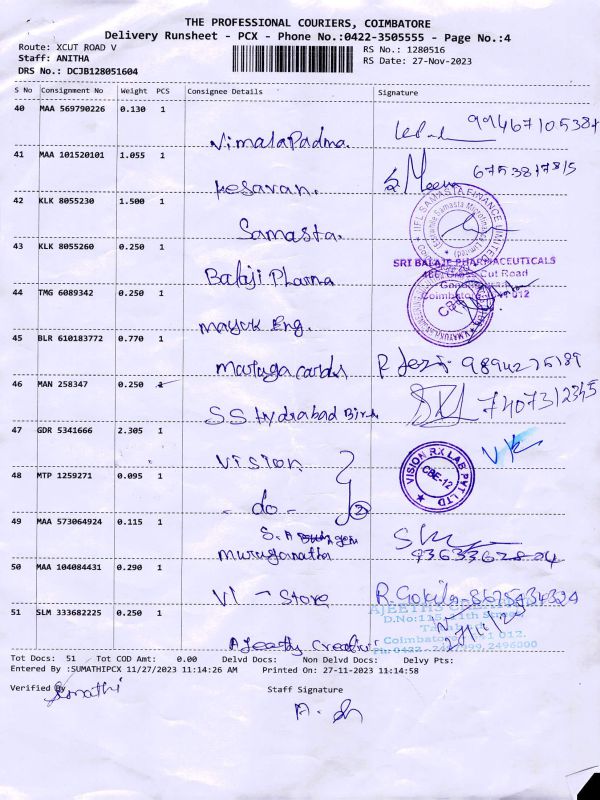 THE PROFESSIONAL COURIERS, COIMBATORE
Delivery Runsheet - PCX - Phone No.:0422-3505555 - Page No.:4
Route: XCUT ROAD V
RS No.: 1280516
Staff: ANITHA
RS Date: 27-Nov-2023
DRS No.: DCJB128051604
S No Consignment No Weight PCS Consignee Details Signature
40 MAA 569790226 0.130 1
VimalaPadma.
41 MAA 101520101 1.055 1
Kesavan.
42 KLK 8055230 1.500 1
Samasta.
43 KLK 8055260 0.250 1
Balaji Pharma
SRI BALAJE PHARMACEUTICALS
Cut Road
Coimbatore 012
44 TMG 6089342 0.250 1
Mayuk Eng.
45 BLR 610183772 0.770 1
46 MAN 258347 0.250 1
S.S Hydrabad Biri
7407312345
47 GDR 5341666 2.305 1
Vision
VISION RX LAB PVT LTD
CBE-12
48 MTP 1259271 0.095 1
- do - 2
49 MAA 573064924 0.115 1
S.A
Muruganatha
50 MAA 104084431 0.290 1
VI - Store
R. Gokila
51 SLM 333682225 0.250 1
Tot Docs: 51 Tot COD Amt: 0.00 Delvd Docs: Non Delvd Docs: Delvy Pts:
Entered By :SUMATHIPCX 11/27/2023 11:14:26 AM Printed On: 27-11-2023 11:14:58
Verified By Sumathi
Staff Signature